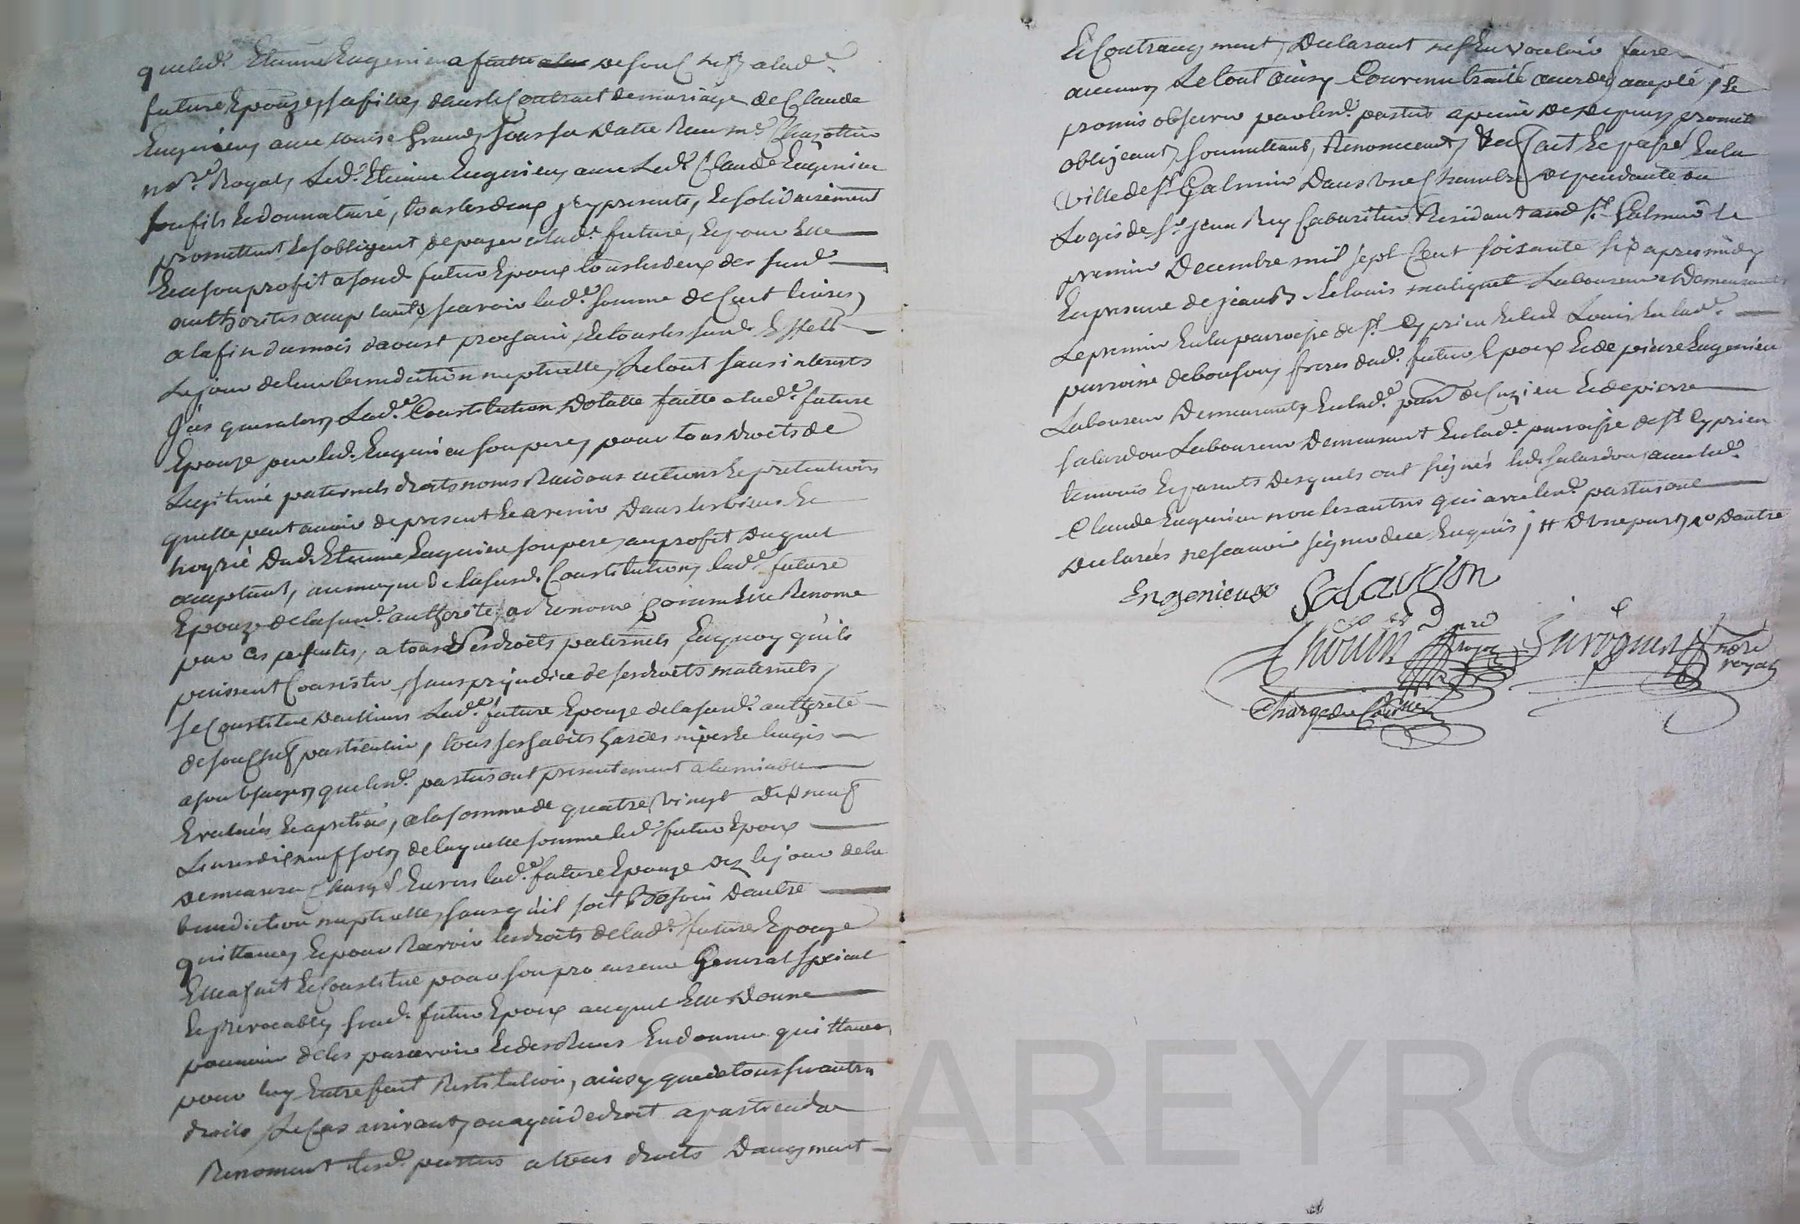 que led.t Etienne Eugenieu a faitte de son chef a lad.e
future Epouze, sa fille, dans le Contract de mariage de Claude
Eugenieu avec Louise Grand, sous sa datte Reçu m.e
no.re Royal, Led.t Etienne Eugenieu avec Led.t Claude Eugenieu
son fils Et donnataire, tous les deux jcy presents, Et solidairement
promettent Et s'obligent de payer a lad.e future, Et pour Elle
Et a son profit a sond. futur Epoux tous les deux des susd.
authorités acceptants, scavoir lad.e somme de Cent livres,
a la fin du mois d'aoust prochain, Et tous les susd. Effets
Le jour de leur benediction nuptialle, Le tout sans interests
jusques alors, Lad.e Constitution Dotalle faitte a lad.e future
Epouze par led. Eugenieu son pere, pour tous droits de
Legitime paternels droits noms Raisons actions Et pretentions
qu'elle peut avoir de present Et a venir Dans les biens Et
hoyrie Dud. Etienne Eugenieu son pere, au profit Duquel
acceptant, au moyen de la susd. Constitution, lad.e future
Epouze de la susd. authorité a Renoncé Comme Elle Renonce
par ces presentes, a tous Ses droits paternels En quoy qu'ils
puissent Consister, sans prejudice de ses droits maternels,
se Constitue D'ailleurs Lad.e future Epouze de la susd. authorité
de son Chef particulier, tous ses habits hardes nipes Et linges
a son usage, que lesd. parties ont presentement a l'amiable
Evalués Et apretiés, a la somme de quatre vingt dix neuf
Livres dix neuf sols, de laquelle somme led. futur Epoux
Demeurera Chargé Envers lad.e future Epouze Dez le jour de la
benediction nuptialle, sans qu'il soit Besoin D'autre
quittance, Et pour Recevoir les droits de lad.e future Epouze
Elle a fait Et Constitué pour son procureur General Special
Et jrrevocable, sond. futur Epoux auquel Elle Donne
pouvoir de les percevoir Et des Receus En donner quittance
pour luy Entre faut Restitution, ainsy que de tous ses autres
droits Le Cas arrivant, ou a qui de droit apartiendra
Renoncent lesd. parties a tous droits D'augment
Et Contraugment, Declarant n'En vouloir faire
aucun, Le tout ainsy Convenu traité accordé accepté, Et
promis observer par lesd. parties a peine De Depens, promet.
obligeant, soumettant, Renonceant, &a fait Et passé En la
ville de S.t Galmier Dans Une Chambre dependante du
Logis de S.r jean Rey Cabaretier Residant aud S.t Galmier le
premier Decembre mil sept Cent soixante six apres midy
En presence de jean B. Et Louis malignet Laboureurs Demeurants
Le premier En la parroisse de S.t Cyprien Et led Louis En lad.e
parroisse de bonson, freres dud. futur Epoux Et de pierre Eugenieu
Laboureur Demeurant, En lad.e parr.e de Cuzieu Et de pierre
salardon Laboureur Demeurant En lad.e parroisse de S.t Cyprien
temoins Et parents Desquels ont signés led. salardon avec led.
Claude Eugenieu non les autres qui avec lesd. parties ont
Declarés ne scavoir signer de ce Enquis j tt D'une part, 1o D'autre
Engenieux Salardon
Thoulin n.re royal jurognier n.re royal
Chargé du
CHAREYRON